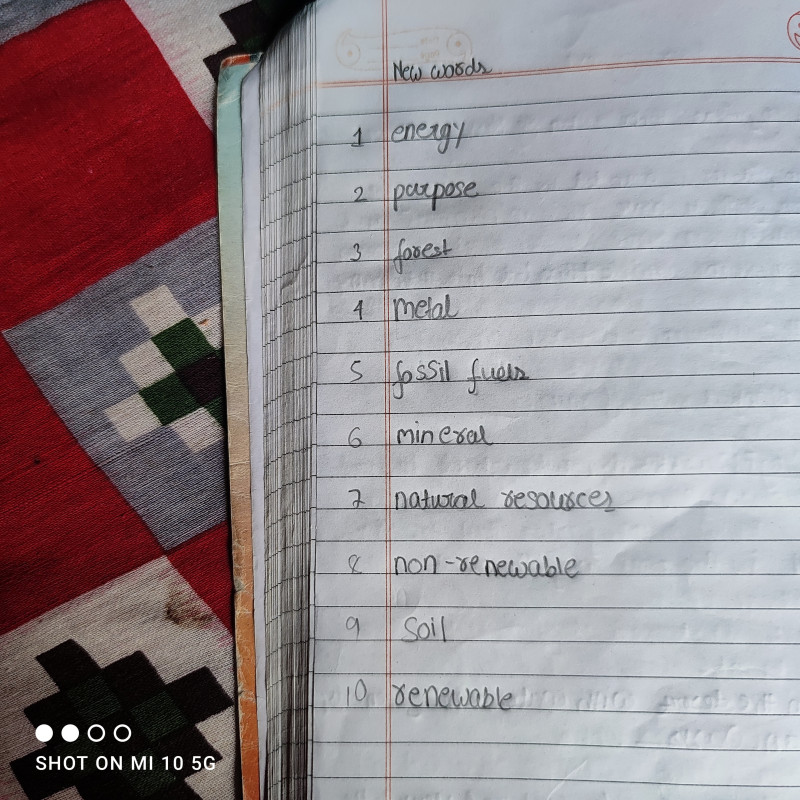 New words
1 energy
2 purpose
3 forest
4 Metal
5 fossil fuels
6 mineral
7 natural resources
8 non-renewable
9 Soil
10 renewable
SHOT ON MI 10 5G